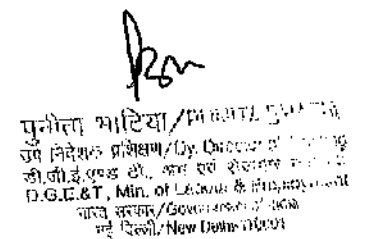 पुनीता भाटिया/PUNITA BHATIA
उप निदेशक प्रशिक्षण/Dy. Director of Training
डी.जी.ई.एण्ड टी., श्रम एवं रोजगार
D.G.E.&T., Min. of Labour & Employment
भारत सरकार/Government of India
नई दिल्ली/New Delhi-110001